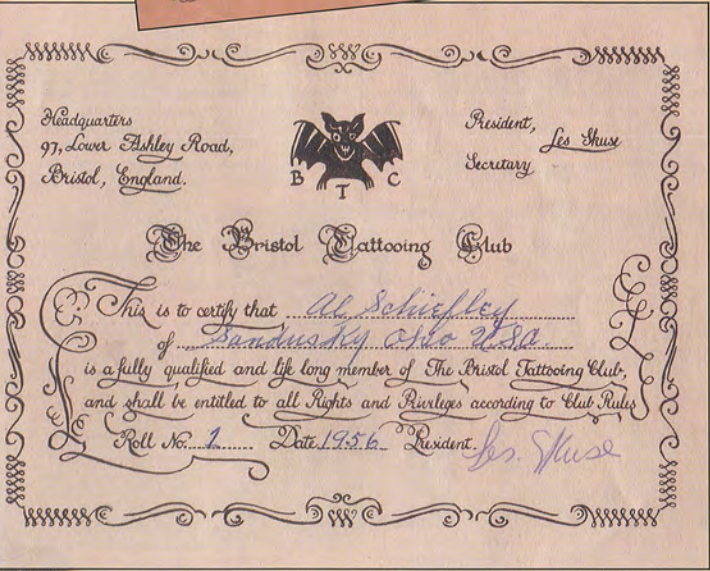 Headquarters
97, Lower Ashley Road,
Bristol, England.
B T C
President, Les Skuse
Secretary
The Bristol Tattooing Club
This is to certify that Al Schiefley
of Sandusky Ohio USA.
is a fully qualified and life long member of The Bristol Tattooing Club,
and shall be entitled to all Rights and Privileges according to Club Rules
Roll No. 1 Date 1956 President Les. Skuse